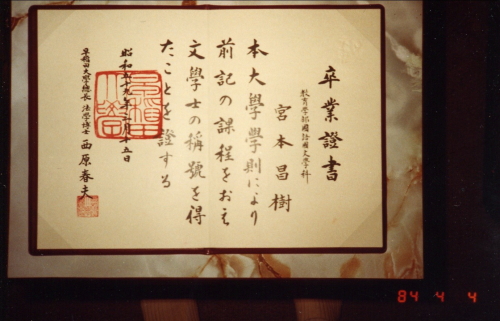 卒業證書
教育学部國語國文學科
宮本昌樹
本大學學則により
前記の課程をおえ
文學士の稱號を得
たことを證する
昭和五十九年三月二十五日
早稲田大學總長 法学博士 西原春夫
84 4 4